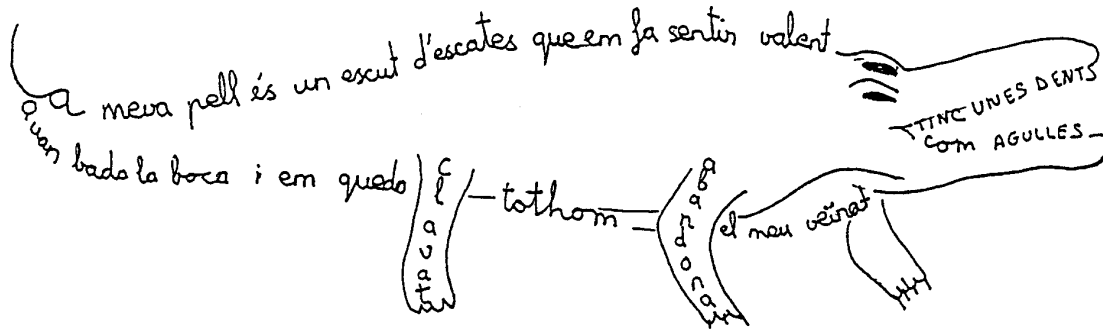 La meva pell és un escut d'escates que em fa sentir valent
TINC UNES DENTS
com AGULLES
quan bado la boca i em quedo clavat tothom abandona el meu veïnat